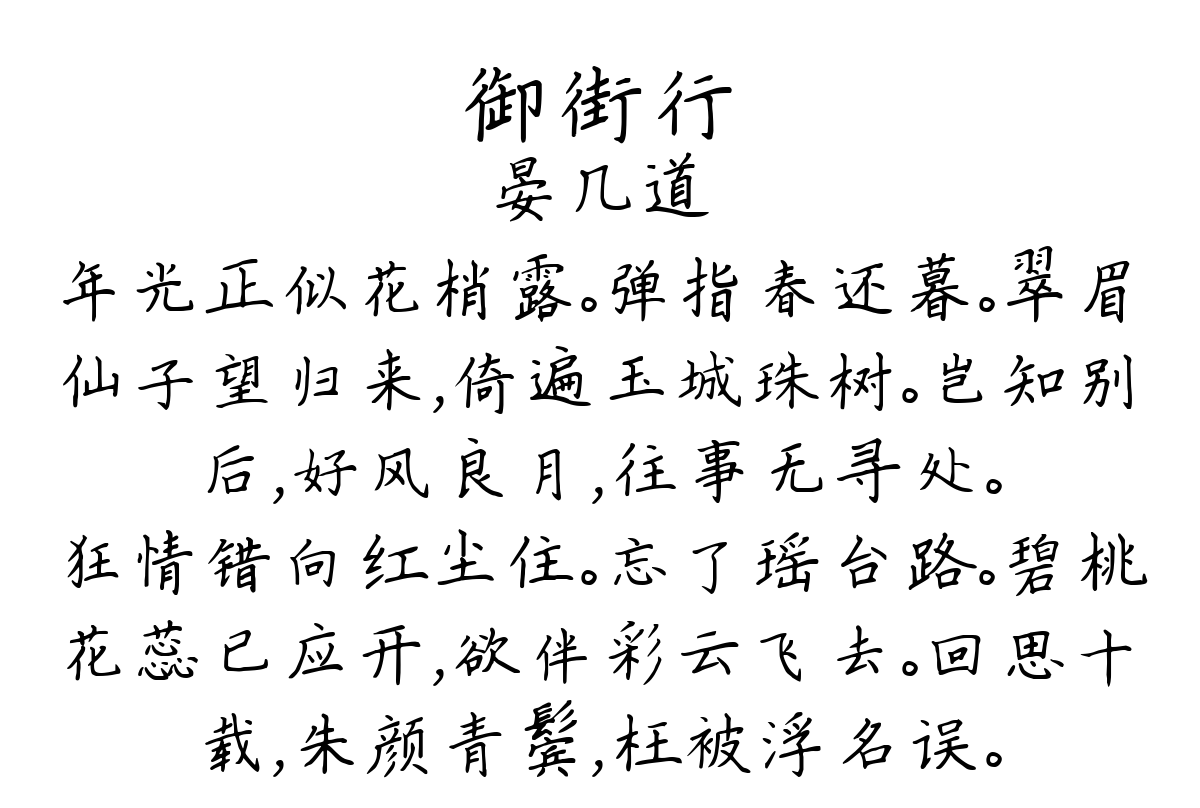 御街行
晏几道
年光正似花梢露。弹指春还暮。翠眉
仙子望归来,倚遍玉城珠树。岂知别
后,好风良月,往事无寻处。
狂情错向红尘住。忘了瑶台路。碧桃
花蕊已应开,欲伴彩云飞去。回思十
载,朱颜青鬓,枉被浮名误。